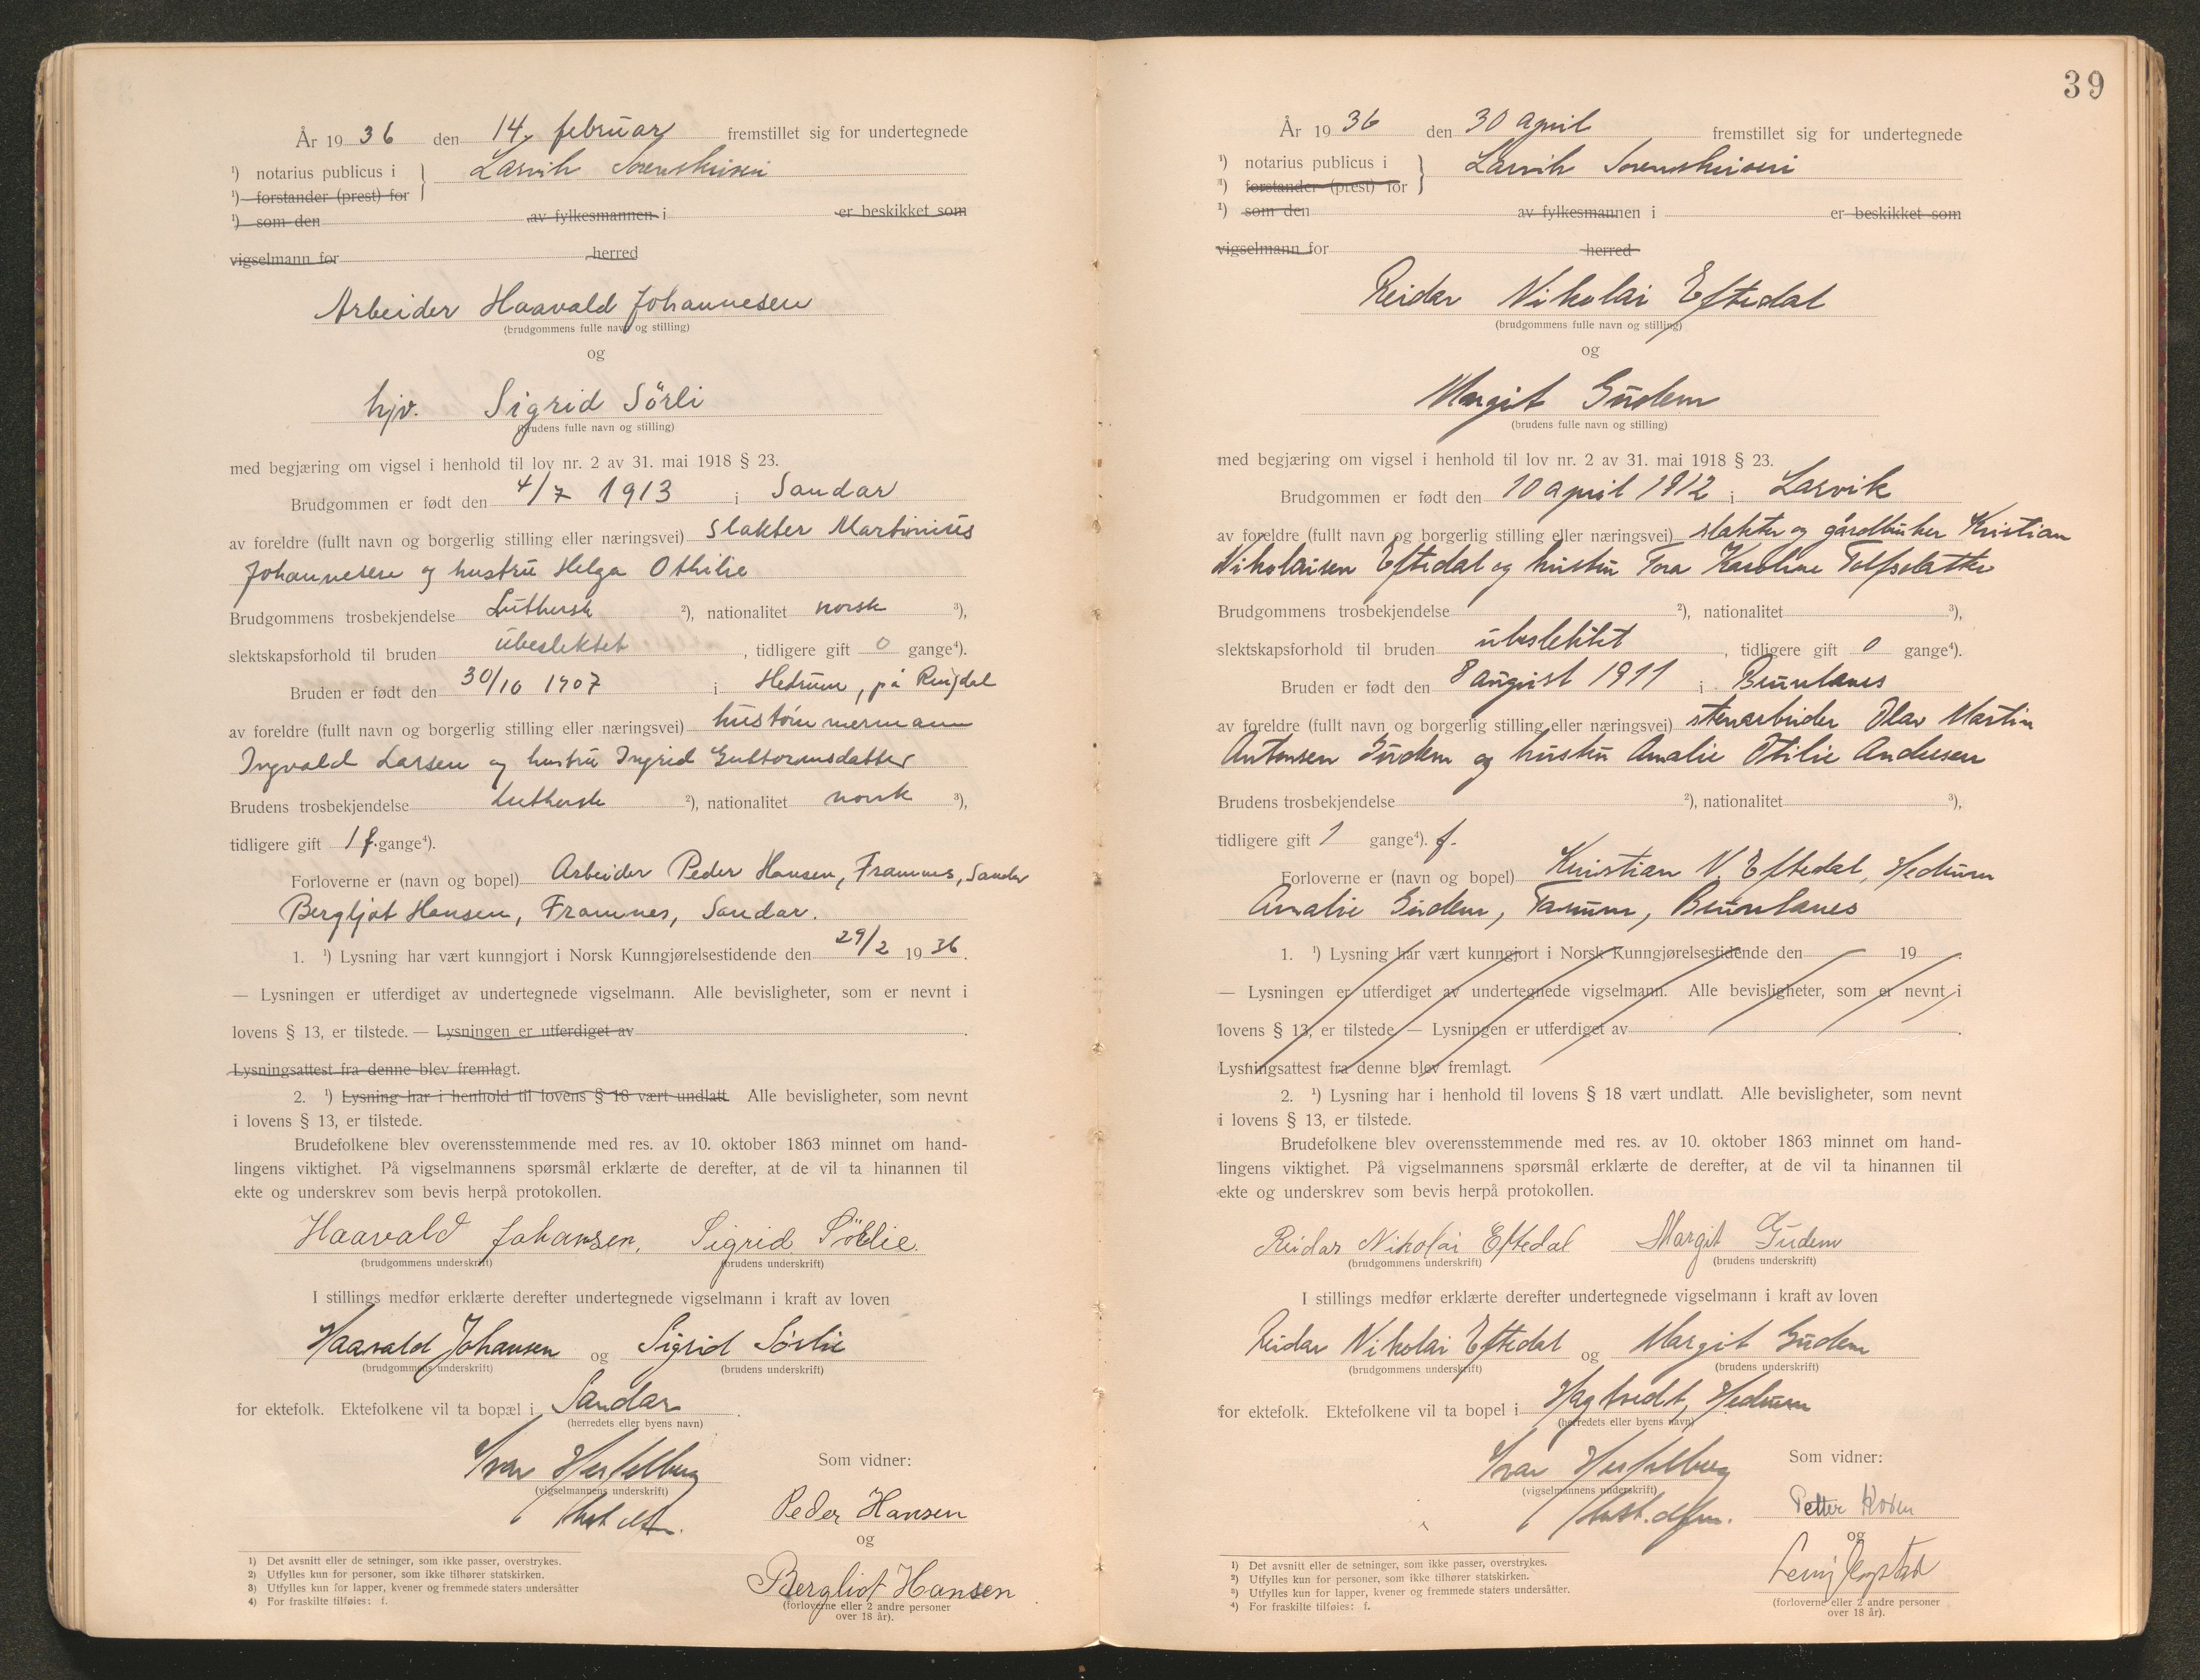 År 1936 den 14. februar fremstillet sig for undertegnede
¹) notarius publicus i } Larvik Sorenskriveri
¹) forstander (prest) for
¹) som den av fylkesmannen i er beskikket som
vigselmann for herred
Arbeider Haavald Johannesen
(brudgommens fulle navn og stilling)
og
hjv. Sigrid Sörli
(brudens fulle navn og stilling)
med begjæring om vigsel i henhold til lov nr. 2 av 31. mai 1918 § 23.
Brudgommen er født den 4/7 1913 i Sandar
av foreldre (fullt navn og borgerlig stilling eller næringsvei) slakter Martinius
Johannesen og hustru Helga Othilie
Brudgommens trosbekjendelse Luthersk ²), nationalitet norsk ³),
slektskapsforhold til bruden ubeslektet , tidligere gift 0 gange⁴).
Bruden er født den 30/10 1907 i Hedrum, på Ringdal
av foreldre (fullt navn og borgerlig stilling eller næringsvei) hustømmermann
Ingvald Larsen og hustru Ingrid Guttormsdatter
Brudens trosbekjendelse Luthersk ²), nationalitet norsk ³),
tidligere gift 1 f. gange⁴).
Forloverne er (navn og bopel) Arbeider Peder Hansen, Framnes, Sandar
Bergljot Hansen, Framnes, Sandar.
1. ¹) Lysning har vært kunngjort i Norsk Kunngjørelsestidende den 29/2 1936.
— Lysningen er utferdiget av undertegnede vigselmann. Alle bevisligheter, som er nevnt i
lovens § 13, er tilstede. — Lysningen er utferdiget av .
Lysningsattest fra denne blev fremlagt.
2. ¹) Lysning har i henhold til lovens § 18 vært undlatt. Alle bevisligheter, som nevnt
i lovens § 13, er tilstede.
Brudefolkene blev overensstemmende med res. av 10. oktober 1863 minnet om hand-
lingens viktighet. På vigselmannens spørsmål erklærte de derefter, at de vil ta hinannen til
ekte og underskrev som bevis herpå protokollen.
Haavald Johansen. Sigrid Sörlie.
(brudgommens underskrift) (brudens underskrift)
I stillings medfør erklærte derefter undertegnede vigselmann i kraft av loven
Haavald Johansen og Sigrid Sörlie
(brudgommens underskrift) (brudens underskrift)
for ektefolk. Ektefolkene vil ta bopæl i Sandar .
(herredets eller byens navn)
Ivar Hesselberg Som vidner:
(vigselmannens underskrift)
Peder Hansen
og
Bergliot Hansen
(forloverne eller 2 andre personer
over 18 år).
1) Det avsnitt eller de setninger, som ikke passer, overstrykes.
2) Utfylles kun for personer, som ikke tilhører statskirken.
3) Utfylles kun for lapper, kvener og fremmede staters undersåtter
4) For fraskilte tilføies: f.
39
År 1936 den 30 april fremstillet sig for undertegnede
¹) notarius publicus i } Larvik Sorenskriveri
¹) forstander (prest) for
¹) som den av fylkesmannen i er beskikket som
vigselmann for herred
Reidar Nikolai Eftedal
(brudgommens fulle navn og stilling)
og
Margit Gudem
(brudens fulle navn og stilling)
med begjæring om vigsel i henhold til lov nr. 2 av 31. mai 1918 § 23.
Brudgommen er født den 10 april 1912 i Larvik
av foreldre (fullt navn og borgerlig stilling eller næringsvei) slakter og gårdbruker Kristian
Nikolaisen Eftedal og hustru Tora Karoline
Brudgommens trosbekjendelse ²), nationalitet ³),
slektskapsforhold til bruden ubeslektet , tidligere gift 0 gange⁴).
Bruden er født den 8 august 1911 i Brunlanes
av foreldre (fullt navn og borgerlig stilling eller næringsvei) stenarbeider Olav Martin
Antonsen Gudem og hustru Amalie Otilie Andersen
Brudens trosbekjendelse ²), nationalitet ³),
tidligere gift 1 gange⁴). f.
Forloverne er (navn og bopel) Kristian N. Eftedal, Hedrum
Amalie Gudem, Tanum, Brunlanes
1. ¹) Lysning har vært kunngjort i Norsk Kunngjørelsestidende den 19 .
— Lysningen er utferdiget av undertegnede vigselmann. Alle bevisligheter, som er nevnt i
lovens § 13, er tilstede — Lysningen er utferdiget av .
Lysningsattest fra denne blev fremlagt.
2. ¹) Lysning har i henhold til lovens § 18 vært undlatt. Alle bevisligheter, som nevnt
i lovens § 13, er tilstede.
Brudefolkene blev overensstemmende med res. av 10. oktober 1863 minnet om hand-
lingens viktighet. På vigselmannens spørsmål erklærte de derefter, at de vil ta hinannen til
ekte og underskrev som bevis herpå protokollen.
Reidar Nikolai Eftedal Margit Gudem
(brudgommens underskrift) (brudens underskrift)
I stillings medfør erklærte derefter undertegnede vigselmann i kraft av loven
Reidar Nikolai Eftedal og Margit Gudem
(brudgommens underskrift) (brudens underskrift)
for ektefolk. Ektefolkene vil ta bopel i Hagtvedt, Hedrum
(herredets eller byens navn)
Ivar Hesselberg Som vidner:
(vigselmannens underskrift)
Petter
og
(forloverne eller 2 andre personer
over 18 år).
1) Det avsnitt eller de setninger, som ikke passer, overstrykes.
2) Utfylles kun for personer, som ikke tilhører statskirken.
3) Utfylles kun for lapper, kvener og fremmede staters undersåtter.
4) For fraskilte tilføies: f.